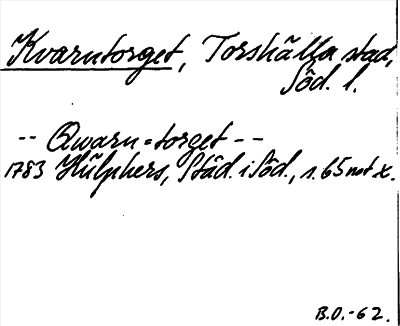 Kvarntorget, Torshälla stad,
Söd. l.
-- Qwarn=torget --
1783 Hülphers, Städ. i Söd., s. 65 not x.
B.O.-62.